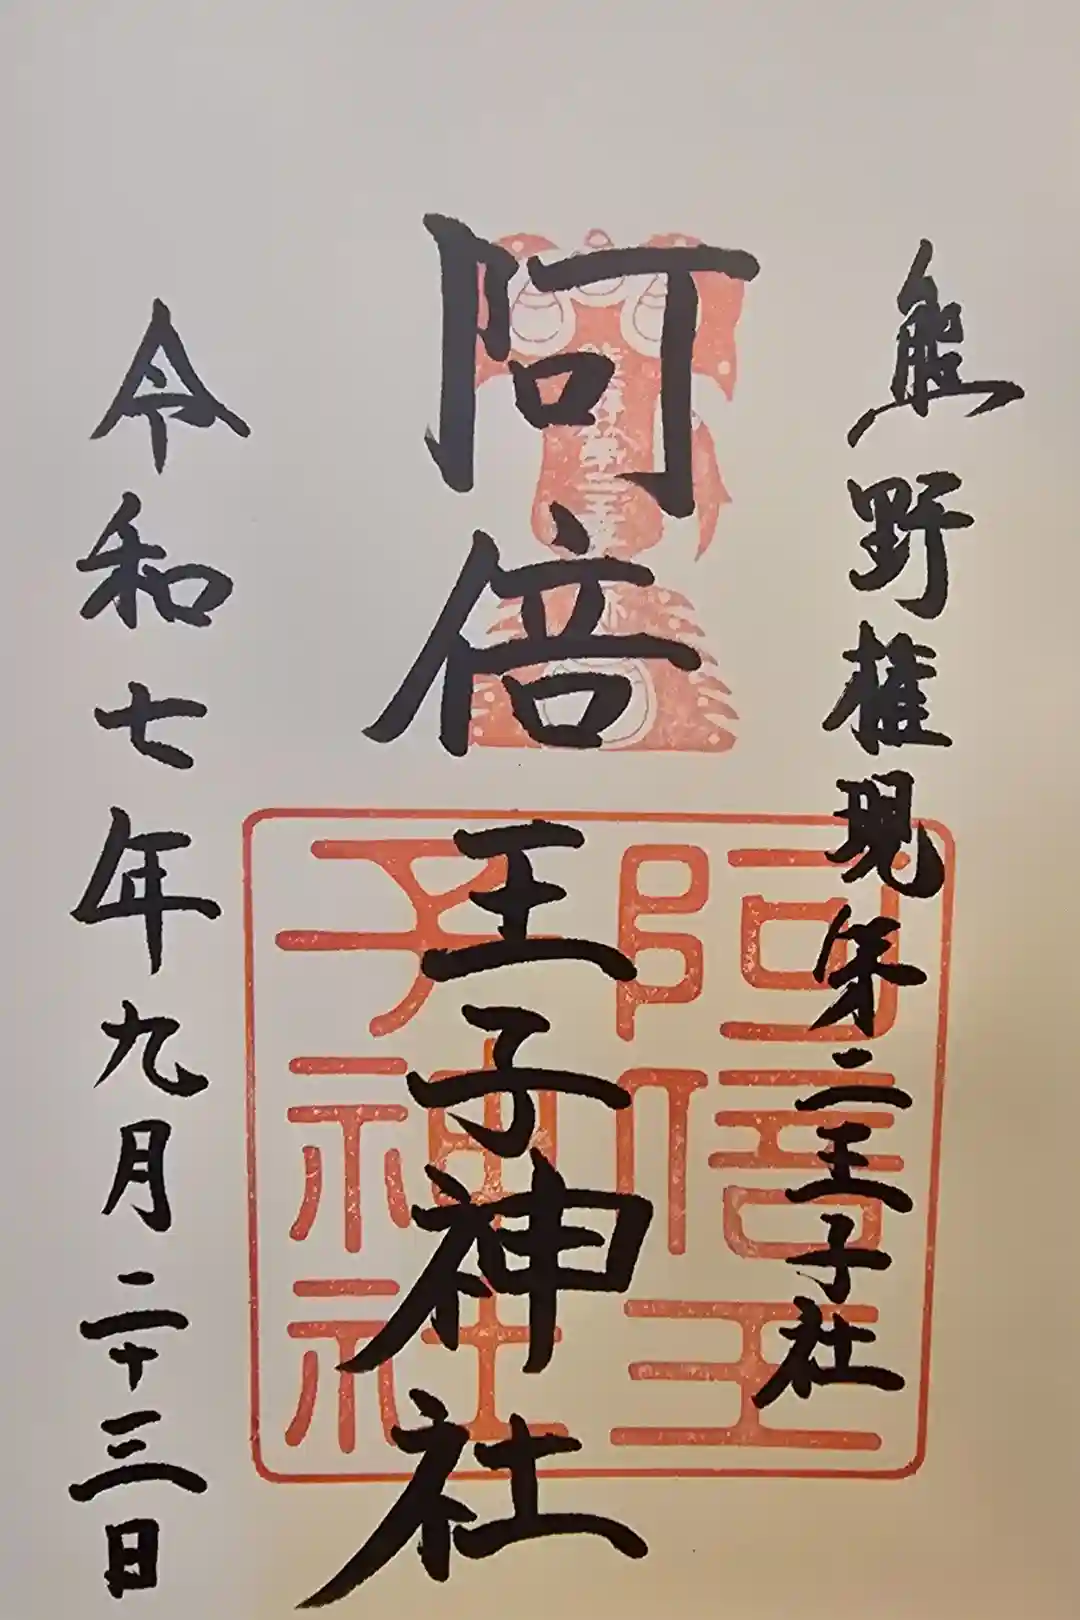 熊野権現第二王子社
阿倍王子神社
令和七年九月二十三日
阿倍王
子神社